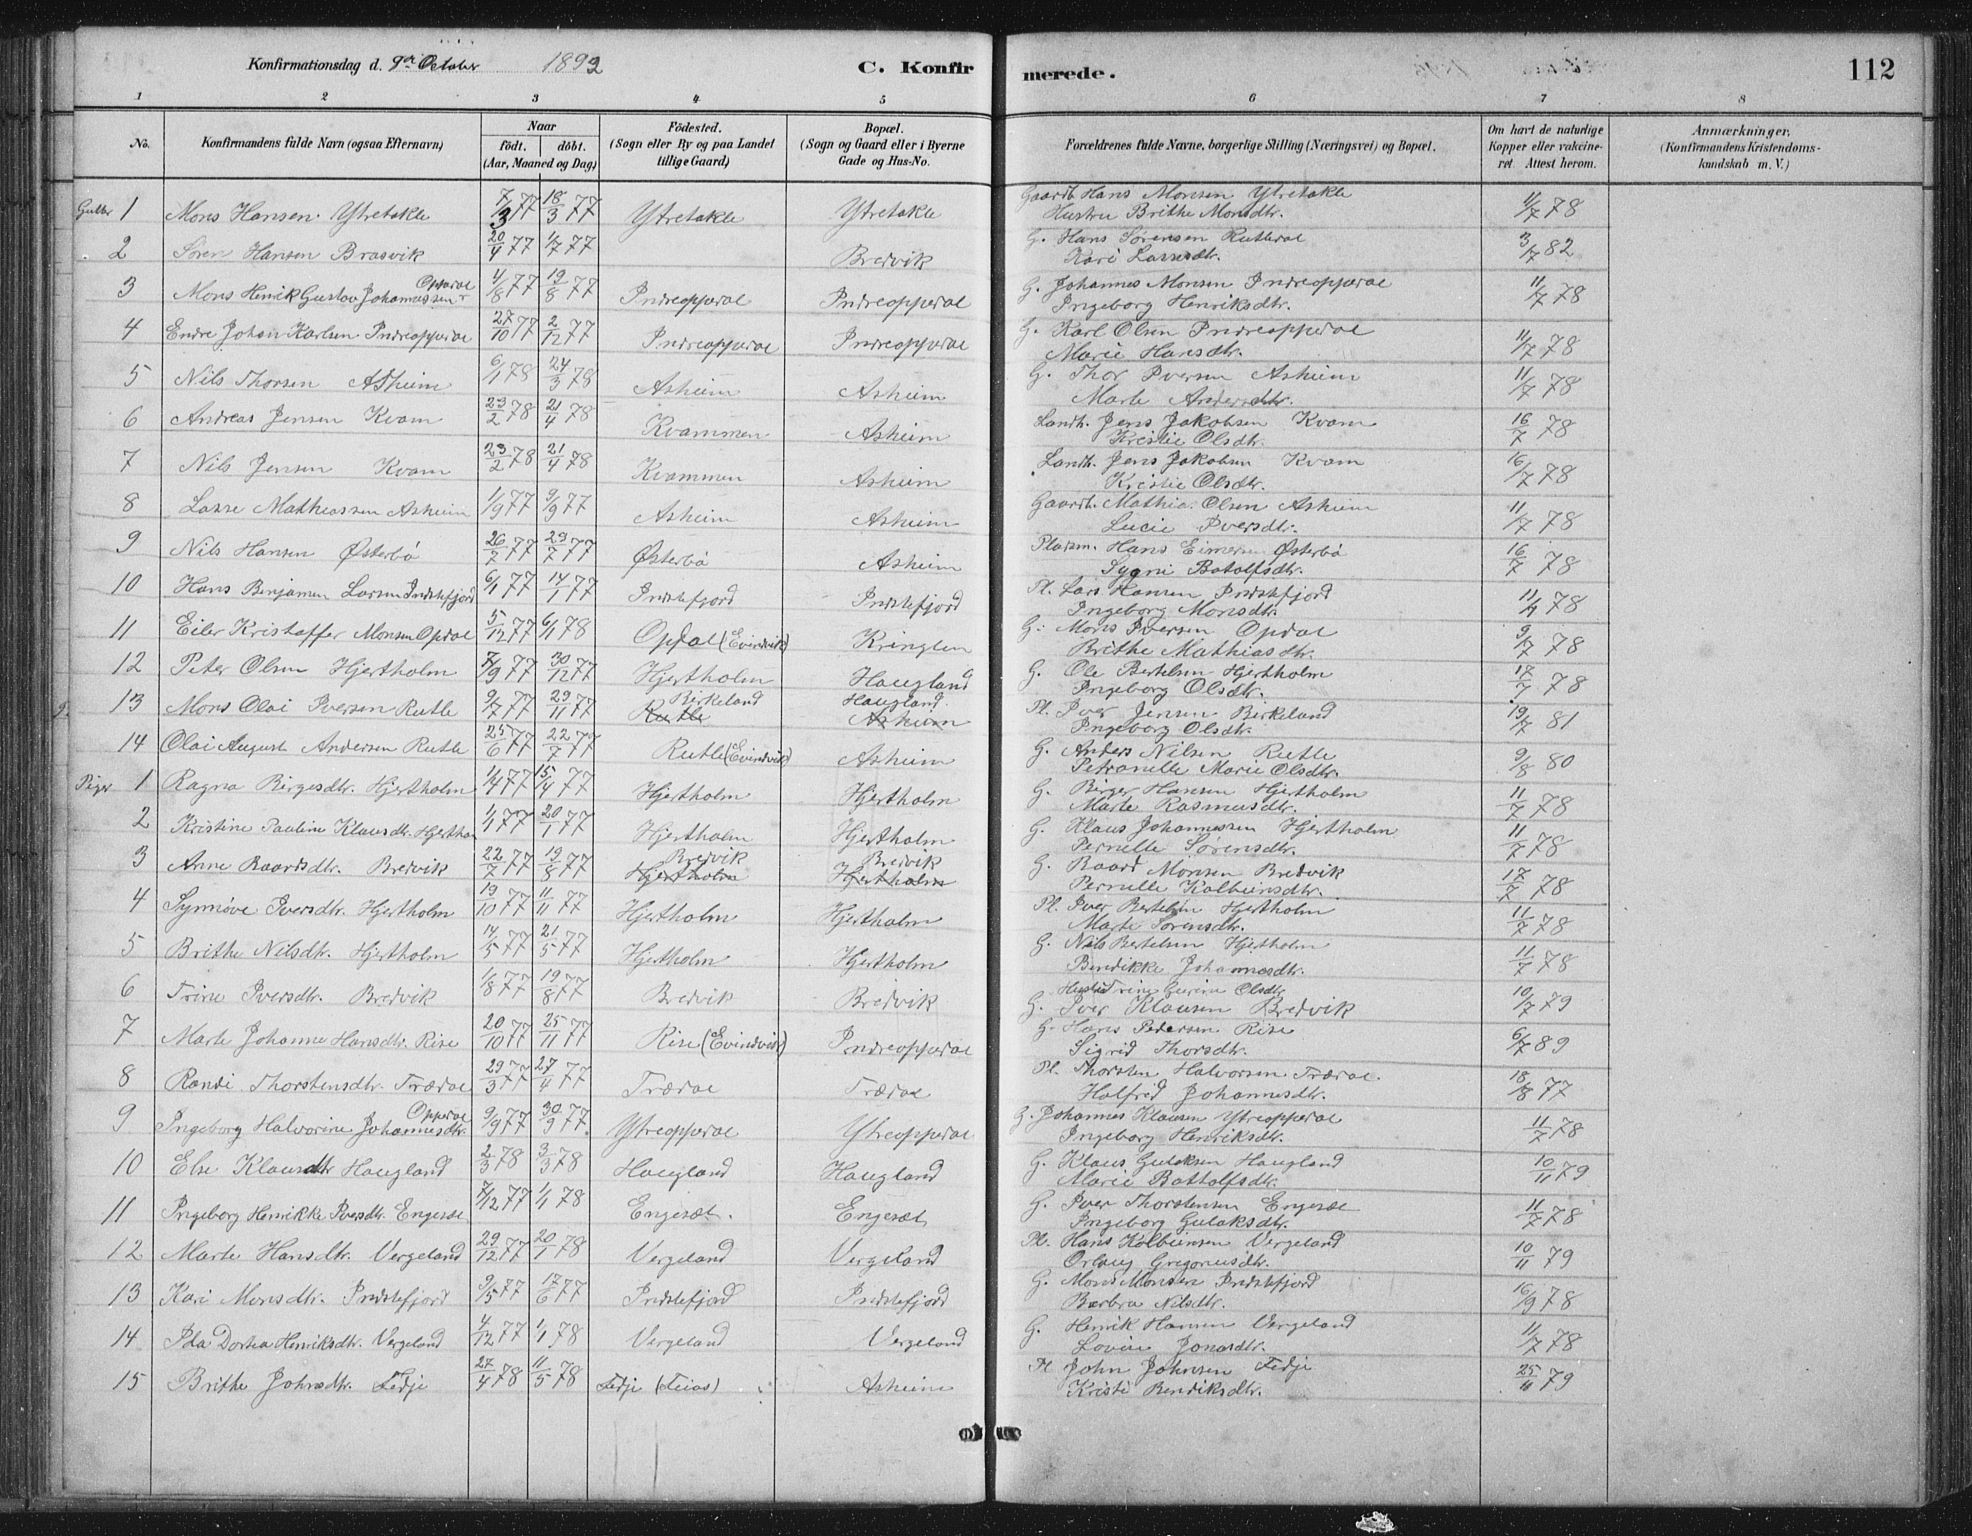 Konfirmationsdag d. 9de October 1892 C. Konfirmerede. 112
1 2 3 4 5 6 7 8
No. Konfirmandens fulde Navn (ogsaa Efternavn) Naar født. døbt. (Aar, Maaned og Dag) Fødested. (Sogn eller By og paa Landet tillige Gaard) Bopæl. (Sogn og Gaard eller i Byerne Gade og Hus-No. Forældrenes fulde Navne, borgerlige Stilling (Næringsvei) og Bopæl. Om havt de naturlige Kopper eller vaccineret. Attest herom. Anmærkninger. (Konfirmandens Kristendomskundskab m. V.)
Gutter 1 Mons Hansen Ytretakle 7/3 77 18/3 77 Ytretakle Ytretakle Gaardb. Hans Monsen Ytretakle Hustru Brithe Monsdtr. 11/7 78
2 Søren Hansen Brosvik 20/4 77 1/7 77 Bredvik G. Hans Sørensen Rutledal Kari Larsdtr. 3/7 82
3 Mons Henrik Gustav Johannessen Opdal 4/8 77 19/8 77 Indreoppdal Indreoppedal G. Johannes Monsen Indreoppedal Ingeborg Henriksdtr. 11/7 78
4 Endre Johan Karlsen Indreoppedal 27/10 77 2/12 77 Indreoppedal Indreoppedal G. Karl Olsen Indreoppedal Marie Hansdtr. 11/7 78
5 Nils Thorsen Asheim 6/1 78 24/3 78 Asheim Asheim G. Thor Iversen Asheim Marte Andersdtr. 11/7 78
6 Andreas Jensen Kvam 23/2 78 21/4 78 Kvammen Asheim Landh. Jens Jakobsen Kvam Kristie Olsdtr. 16/7 78
7 Nils Jensen Kvam 23/2 78 21/4 78 Kvammen Asheim Landh. Jens Jakobsen Kvam Kristie Olsdtr. 16/7 78
8 Lasse Mathiassen Asheim 1/9 77 9/9 77 Asheim Asheim Gaardb. Mathia. Olsen Asheim Lucie Iversdtr. 11/7 78
9 Nils Hansen Østerbø 26/7 77 29/7 77 Østerbø Asheim Pladsm. Hans Eimersen Østerbø Sygni Botolfsdtr. 16/7 78
10 Hans Benjamen Larsen Indstefjord 6/1 77 14/1 77 Indstefjord Indstefjord Pl. Lars Hansen Indstefjord Ingeborg Monsdtr. 11/7 78
11 Eiler Kristoffer Monsen Opdal 5/12 77 6/1 78 Opdal (Evindvik) Kringlen G. Mons Iversen Opdal Brithe Mathiasdtr. 9/7 78
12 Peter Olsen Hjertholm 7/9 77 30/12 77 Hjertholm Haugland G. Ole Bertelsen Hjertholm Ingeborg Olsdtr. 17/7 78
13 Mons Olai Iversen Rutle 9/7 77 29/11 77 Birkeland Rutle Haugland Asheim Pl. Iver Jensen Birkeland Ingeborg Olsdtr. 19/7 81
14 Olai August Andersen Rutle 25/6 77 22/7 77 Rutle (Evindvik) Asheim G. Anders Nilsen Rutle Petronelle Marie Olsdtr. 9/8 80
Piger 1 Ragna Birgesdtr. Hjertholm 1/4 77 15/4 77 Hjertholm Hjertholm G. Birger Hansen Hjertholm Marte Rasmusdtr. 11/7 78
2 Kristine Pauline Klausdtr. Hjertho 1/1 77 20/1 77 Hjertholm Hjertholm G. Klaus Johannessen Hjertholm Pernille Sørensdtr. 11/7 78
3 Anne Baardsdtr. Bredvik 22/7 77 19/8 77 Bredvik Hjertholm Bredvik Hjertholm G. Baard Monsen Bredvik Pernille Kolbeinsdtr. 17/7 78
4 Synnøve Iversdtr. Hjertholm 19/10 77 11/11 77 Hjertholm Hjertholm Pl. Iver Bertelsen Hjertholm Marte Sørensdtr. 11/7 78
5 Brithe Nilsdtr. Hjertholm 14/5 77 21/5 77 Hjertholm Hjertholm G. Nils Bertelsen Hjertholm Bendikke Johannesdtr. 11/7 78
6 Trine Iversdtr. Bredvik 1/8 77 19/8 77 Bredvik Bredvik Hustru Trine Gurine Olsdtr G. Iver Klausen Bredvik 10/7 79
7 Marte Johanne Hansdtr. Rise 20/10 77 25/11 77 Rise (Evindvik) Indreoppedal G. Hans Pedersen Rise Sigrid Thorsdtr. 6/7 89
8 Randi Thorstensdtr. Trædal 29/3 77 27/4 77 Trædal Trædal Pl. Thorsten Halvorsen Trædal. Halfrid Johannesdtr. 18/8 77
9 Ingeborg Halvorine Johannesdtr. Oppedal 9/9 77 30/9 77. Ytreoppedal Ytreoppedal G. Johannes Klausen Ytreoppedal Ingeborg Henriksdtr. 11/7 78
10 Else Klausdtr Haugland 2/3 78 3/3 78 Haugland Haugland G. Klaus Gulaksen Haugland Marie Bottolfsdtr. 10/11 79
11 Ingeborg Henrikke Iversdtr. Engesæt 7/12 77 1/1 78 Engesæt. Engesæt G. Iver Thorstensen Engesæt Ingeborg Gulaksdtr. 11/7 78
12 Marte Hansdtr. Vergeland 29/12 77 20/1 78 Vergeland Vergeland Pl. Hans Kolbeinsen Vergeland Orlaug Gregoriusdtr. 10/11 79
13 Kari Monsdtr. Indstefjord 9/5 77 17/6 77 Indstefjord Indstefjord G. Mons Monsen Indstefjord Barbra Nilsdtr. 16/9 78
14 Ida Dortea Henriksdtr. Vergeland 4/12 77 1/1 78 Vergeland Vergeland G. Henrik Hansen Vergeland Lovise Jonasdtr. 11/7 78
15 Brithe Johnsdtr. Fedje 27/4 78 11/5 78 Fedje (Feios) Asheim Pl John Johnsen Fedje Kristi Bendiksdtr. 25/11 79